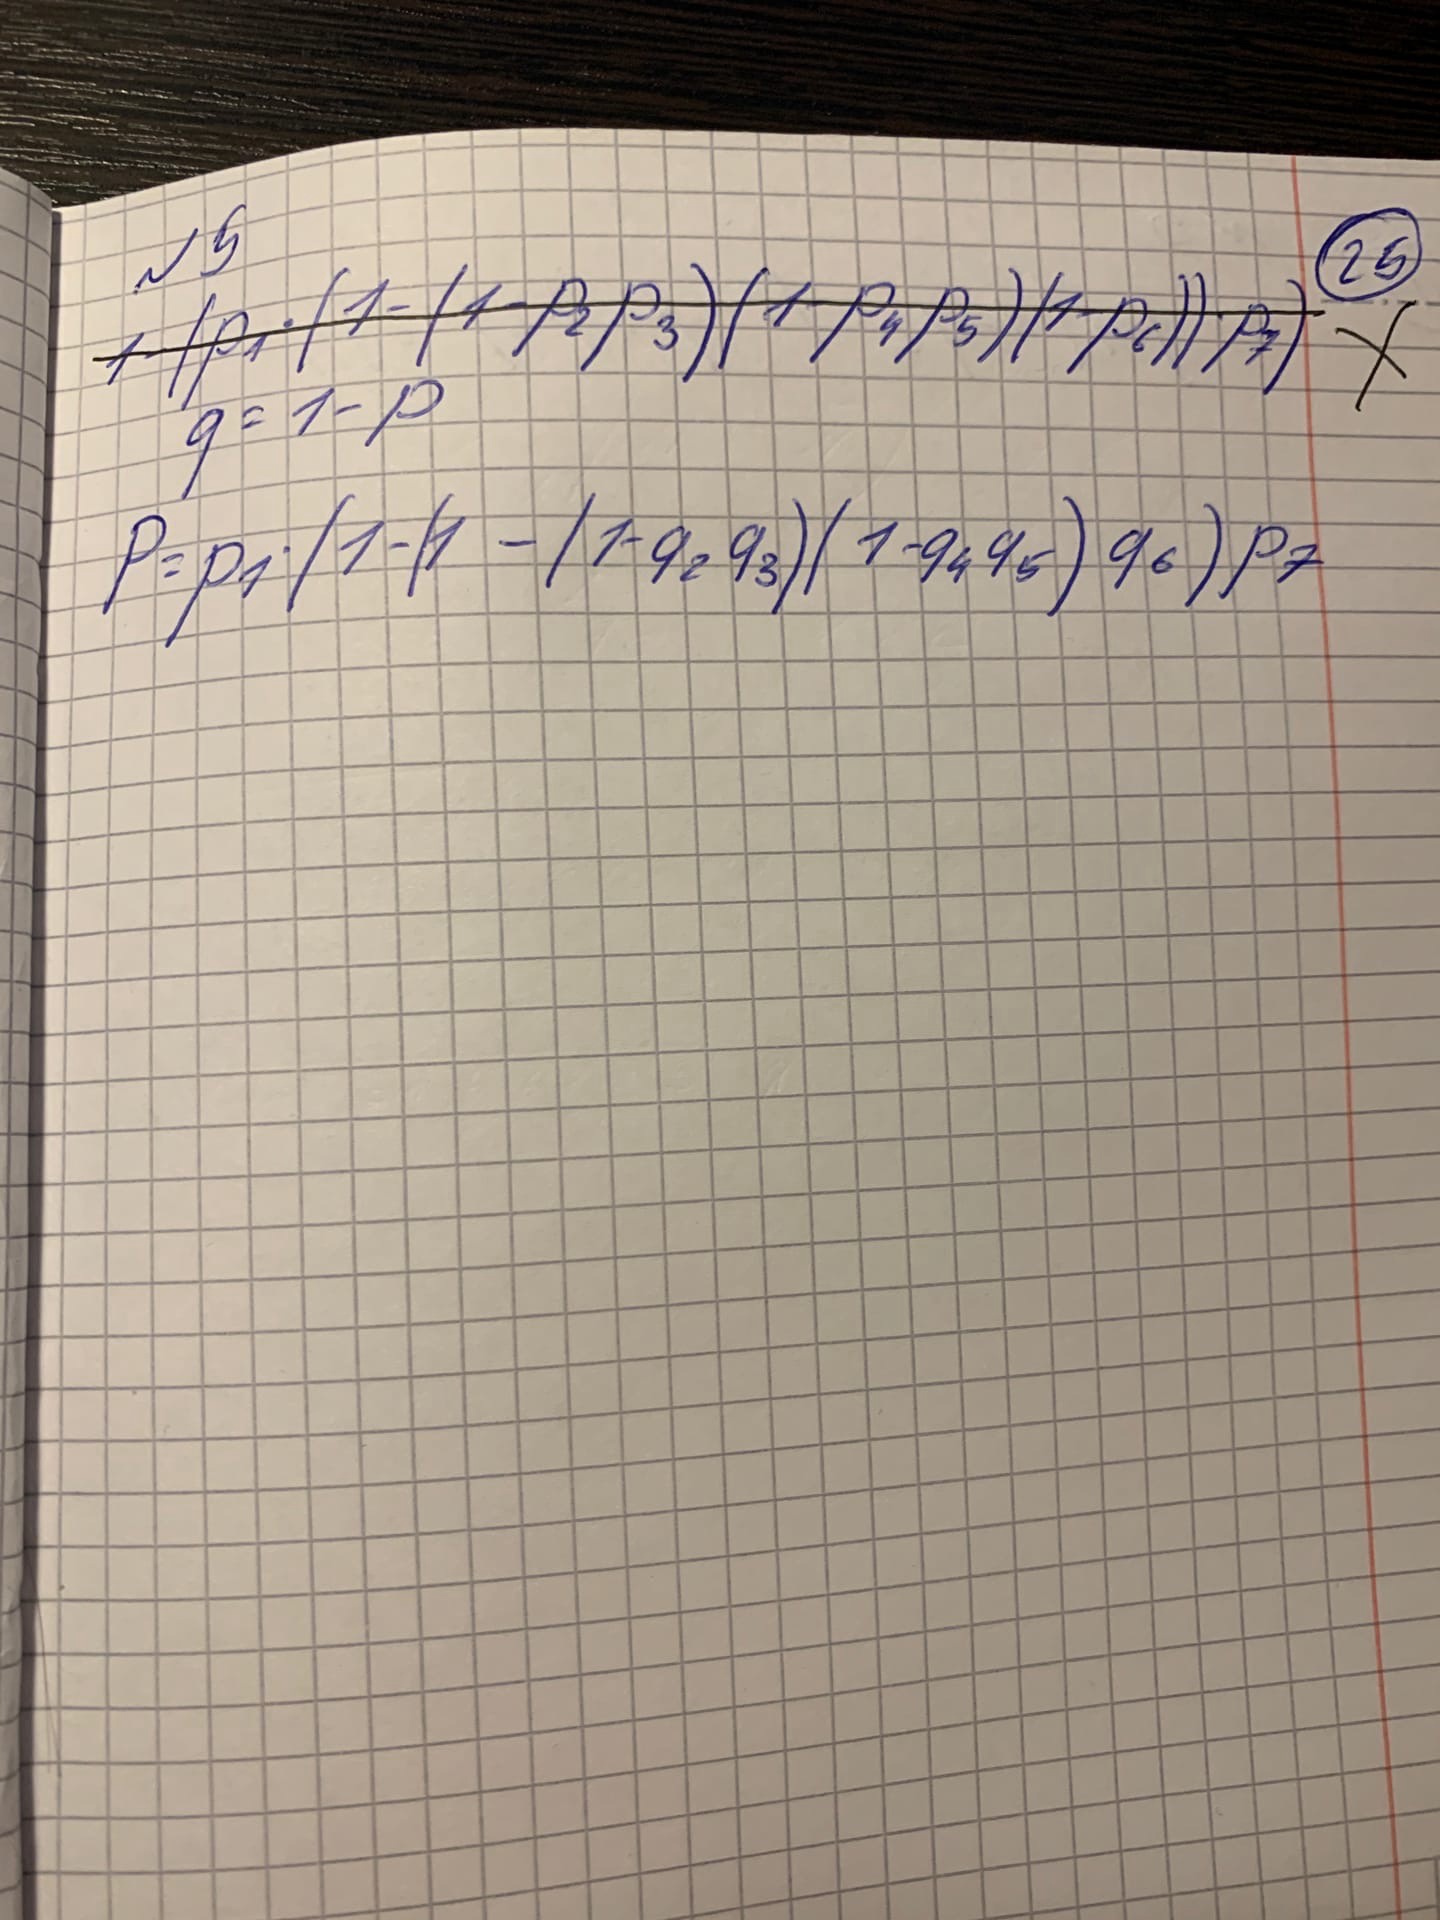 №5
25
1-(p₁·(1-(1-p₂p₃)(1-p₄p₅)(1-p₆))·p₇)
q=1-p
P=p₁·(1-(1-(1-q₂q₃)(1-q₄q₅)q₆)p₇